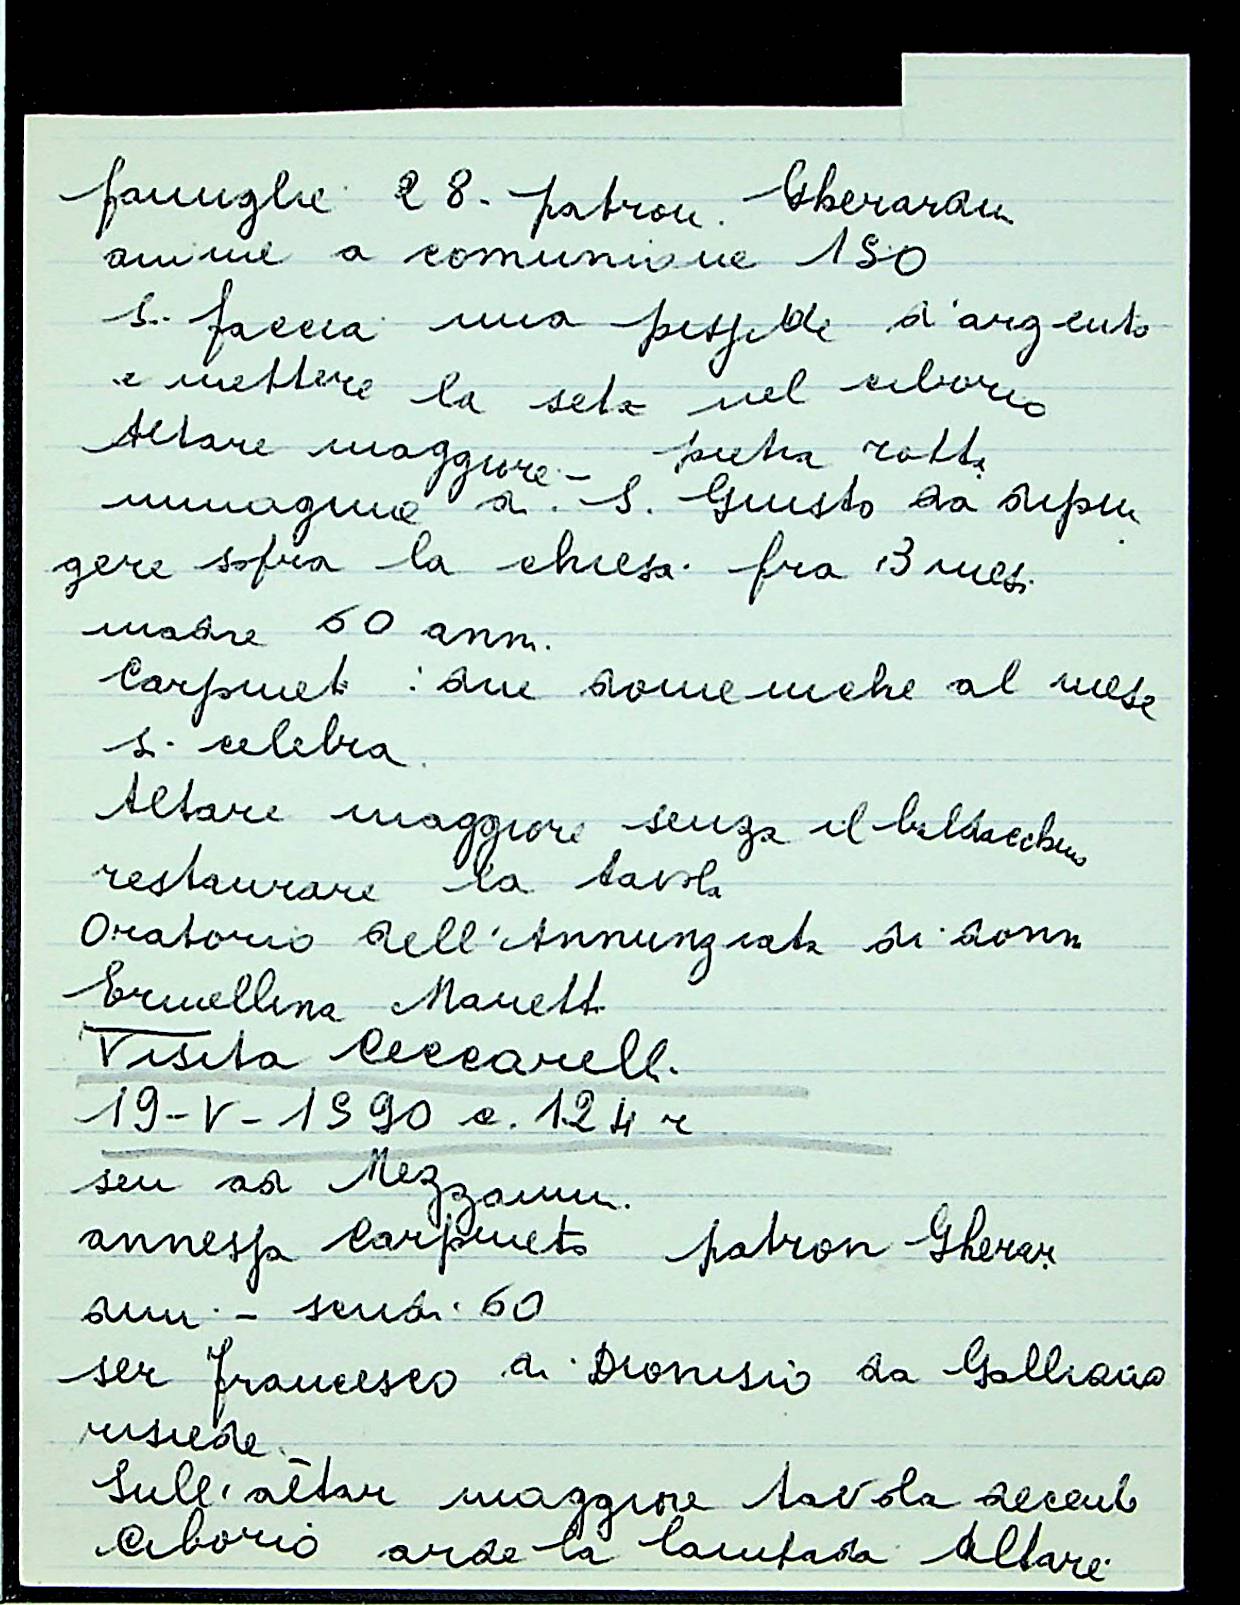 famiglie 28. patron. Gherardin
anime a comunione 150
s. faccia una pisside d'argento
e mettere la seta nel ciborio
Altare maggiore - pietra rotta
immagine di S. Giusto da dipin
gere sopra la chiesa. fra 3 mesi
madre 60 ann.
Carpineto : due domeniche al mese
s. celebra.
Altare maggiore senza il baldacchino
restaurare la tavola
Oratorio dell'Annunziata di donn
Ermellina Marett.
Visita Ceccarell.
19-V-1590 c. 124 r
seu ad Mezzann.
annessa Carpineto patron Gherar
din. - scudi 60
ser Francesco di Dionisio da Galliano
risiede.
Sull'altar maggiore tavola decente
Ciborio arde la lampada Altare